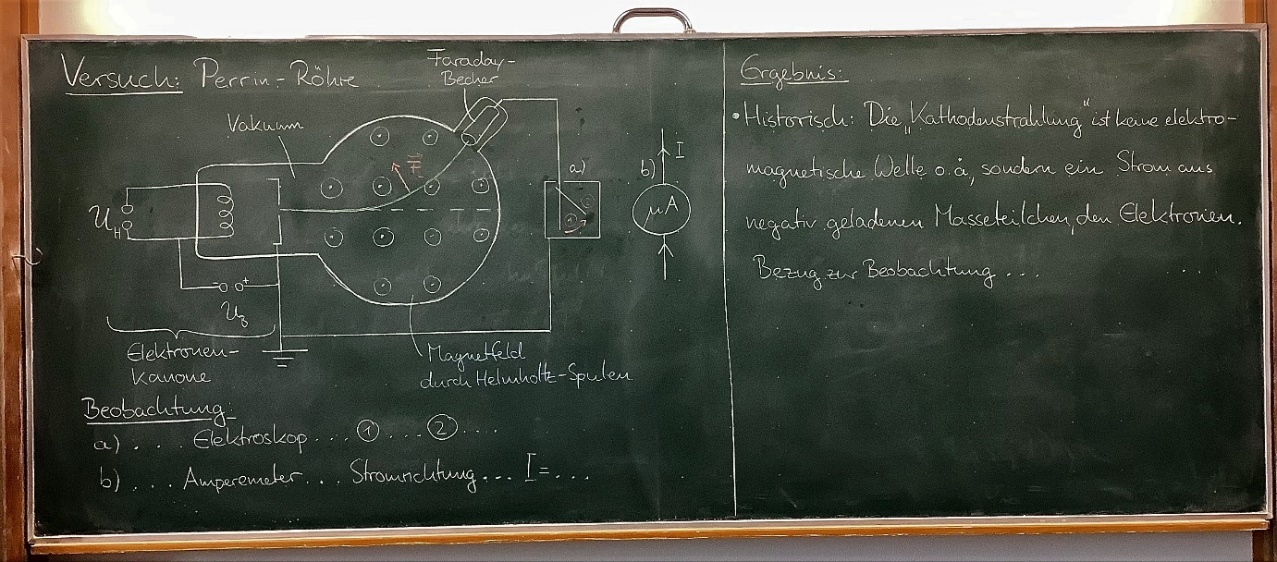 Versuch: Perrin-Röhre
Faraday-
Becher
Vakuum
F
a)
b)
I
U_H
μA
1
U_B
+
Elektronen-
Kanone
Magnetfeld
durch Helmholtz-Spulen
Beobachtung:
a) . . . Elektroskop . . . ① . . . ② . . . .
b) . . . Amperemeter . . . Stromrichtung . . . I = . . .
Ergebnis:
• Historisch: Die „Kathodenstrahlung" ist keine elektro-
magnetische Welle o.ä, sondern ein Strom aus
negativ geladenen Masseteilchen, den Elektronen.
Bezug zur Beobachtung . . . . . .